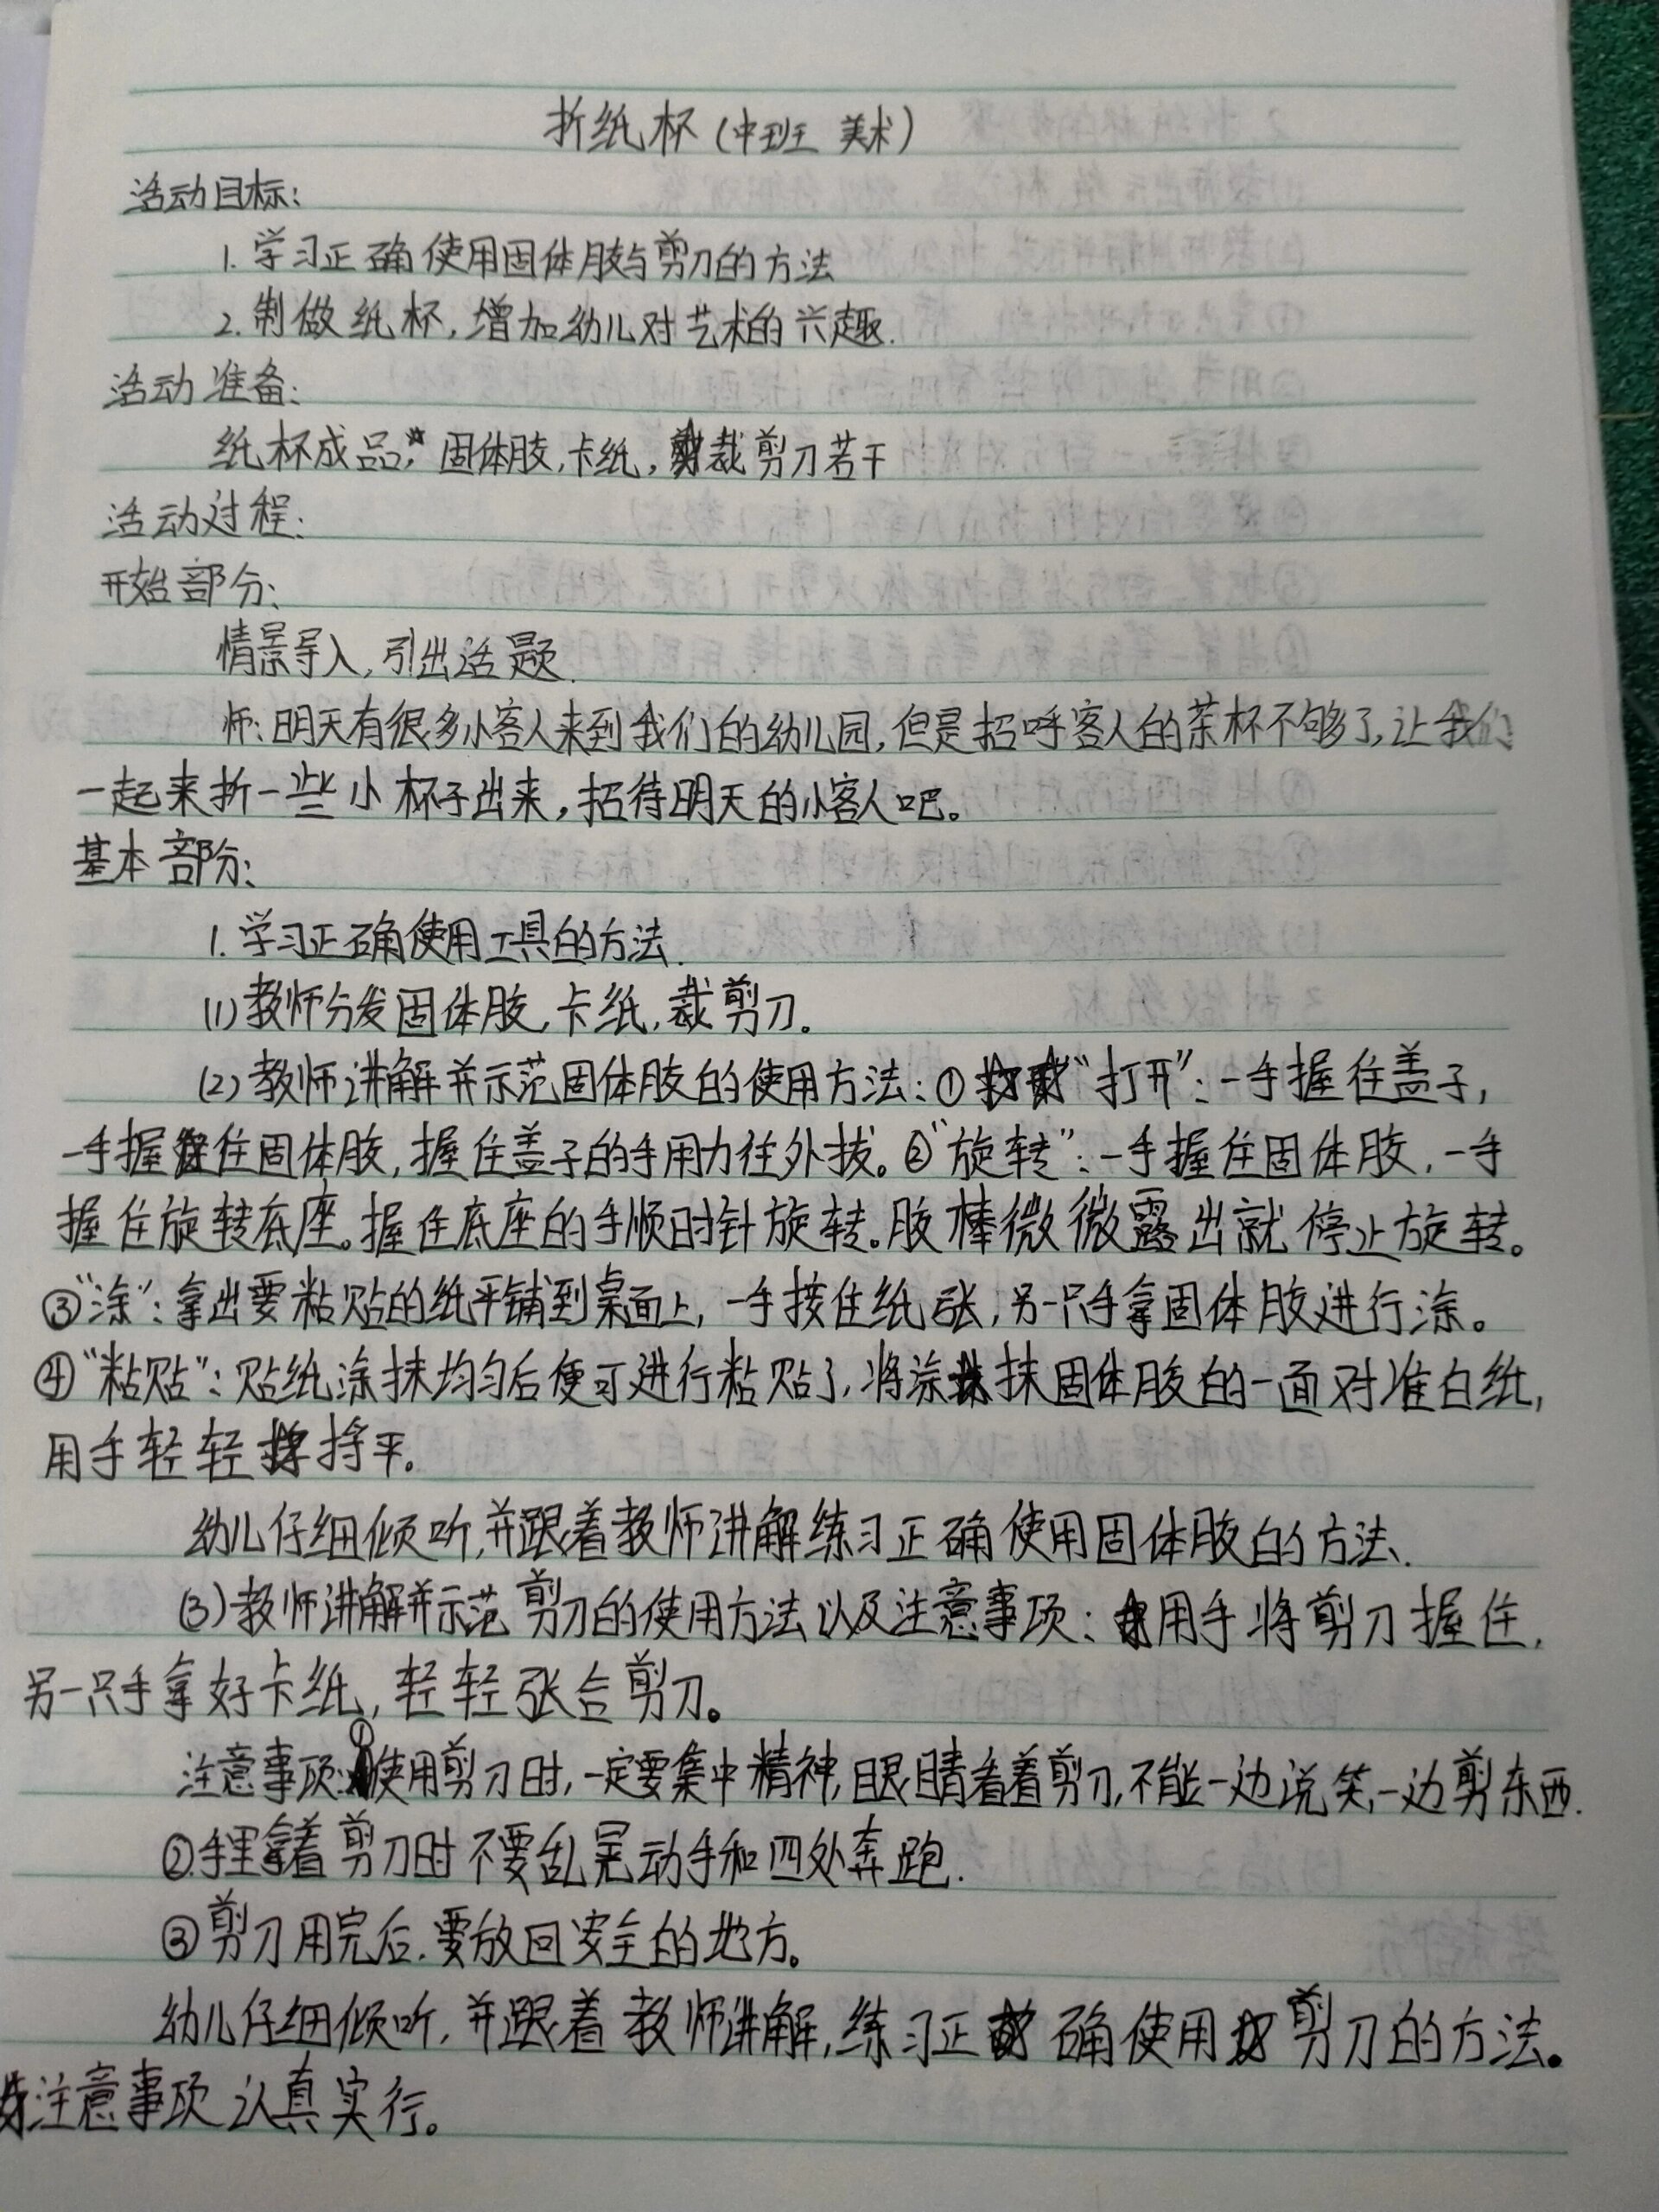 折纸杯(中班 美术)
活动目标:
1. 学习正确使用固体胶与剪刀的方法
2. 制做纸杯,增加幼儿对艺术的兴趣.
活动准备:
纸杯成品,固体胶,卡纸,裁剪刀若干
活动过程:
开始部分:
情景导入,引出话题.
师:明天有很多小客人来到我们的幼儿园,但是招呼客人的茶杯不够了,让我们
一起来折一些小杯子出来,招待明天的小客人吧。
基本部分:
1. 学习正确使用工具的方法.
(1)教师分发固体胶,卡纸,裁剪刀。
(2)教师讲解并示范固体胶的使用方法:①“打开”:一手握住盖子,
一手握住固体胶,握住盖子的手用力往外拔。②“旋转”:一手握住固体胶,一手
握住旋转底座。握住底座的手顺时针旋转。胶棒微微露出就停止旋转。
③“涂”:拿出要粘贴的纸平铺到桌面上,一手按住纸张,另一只手拿固体胶进行涂。
④“粘贴”:贴纸涂抹均匀后便可进行粘贴了,将涂抹固体胶的一面对准白纸,
用手轻轻捋平.
幼儿仔细倾听,并跟着教师讲解练习正确使用固体胶的方法.
(3)教师讲解并示范剪刀的使用方法以及注意事项:用手将剪刀握住,
另一只手拿好卡纸,轻轻张合剪刀。
注意事项:①使用剪刀时,一定要集中精神,眼睛看着剪刀,不能一边说笑,一边剪东西.
②手里拿着剪刀时不要乱晃动手和四处奔跑.
③剪刀用完后.要放回安全的地方。
幼儿仔细倾听,并跟着教师讲解,练习正确使用剪刀的方法。
注意事项认真实行。